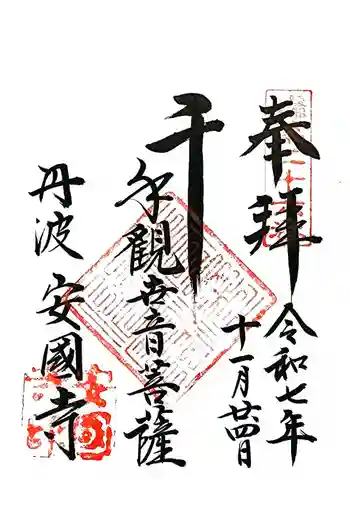 奉拝
令和七年
十一月廿四日
千手觀世音菩薩
丹波 安國寺